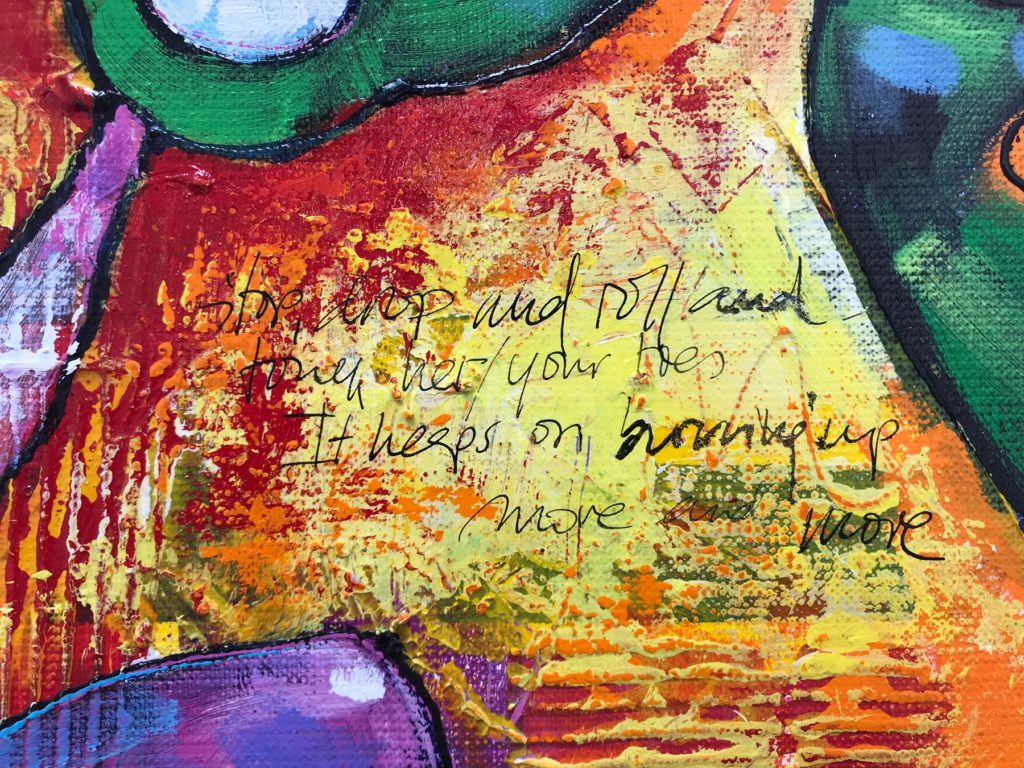 stop, drop and roll/and
touch her/your toes
It keeps on burning up
more and more